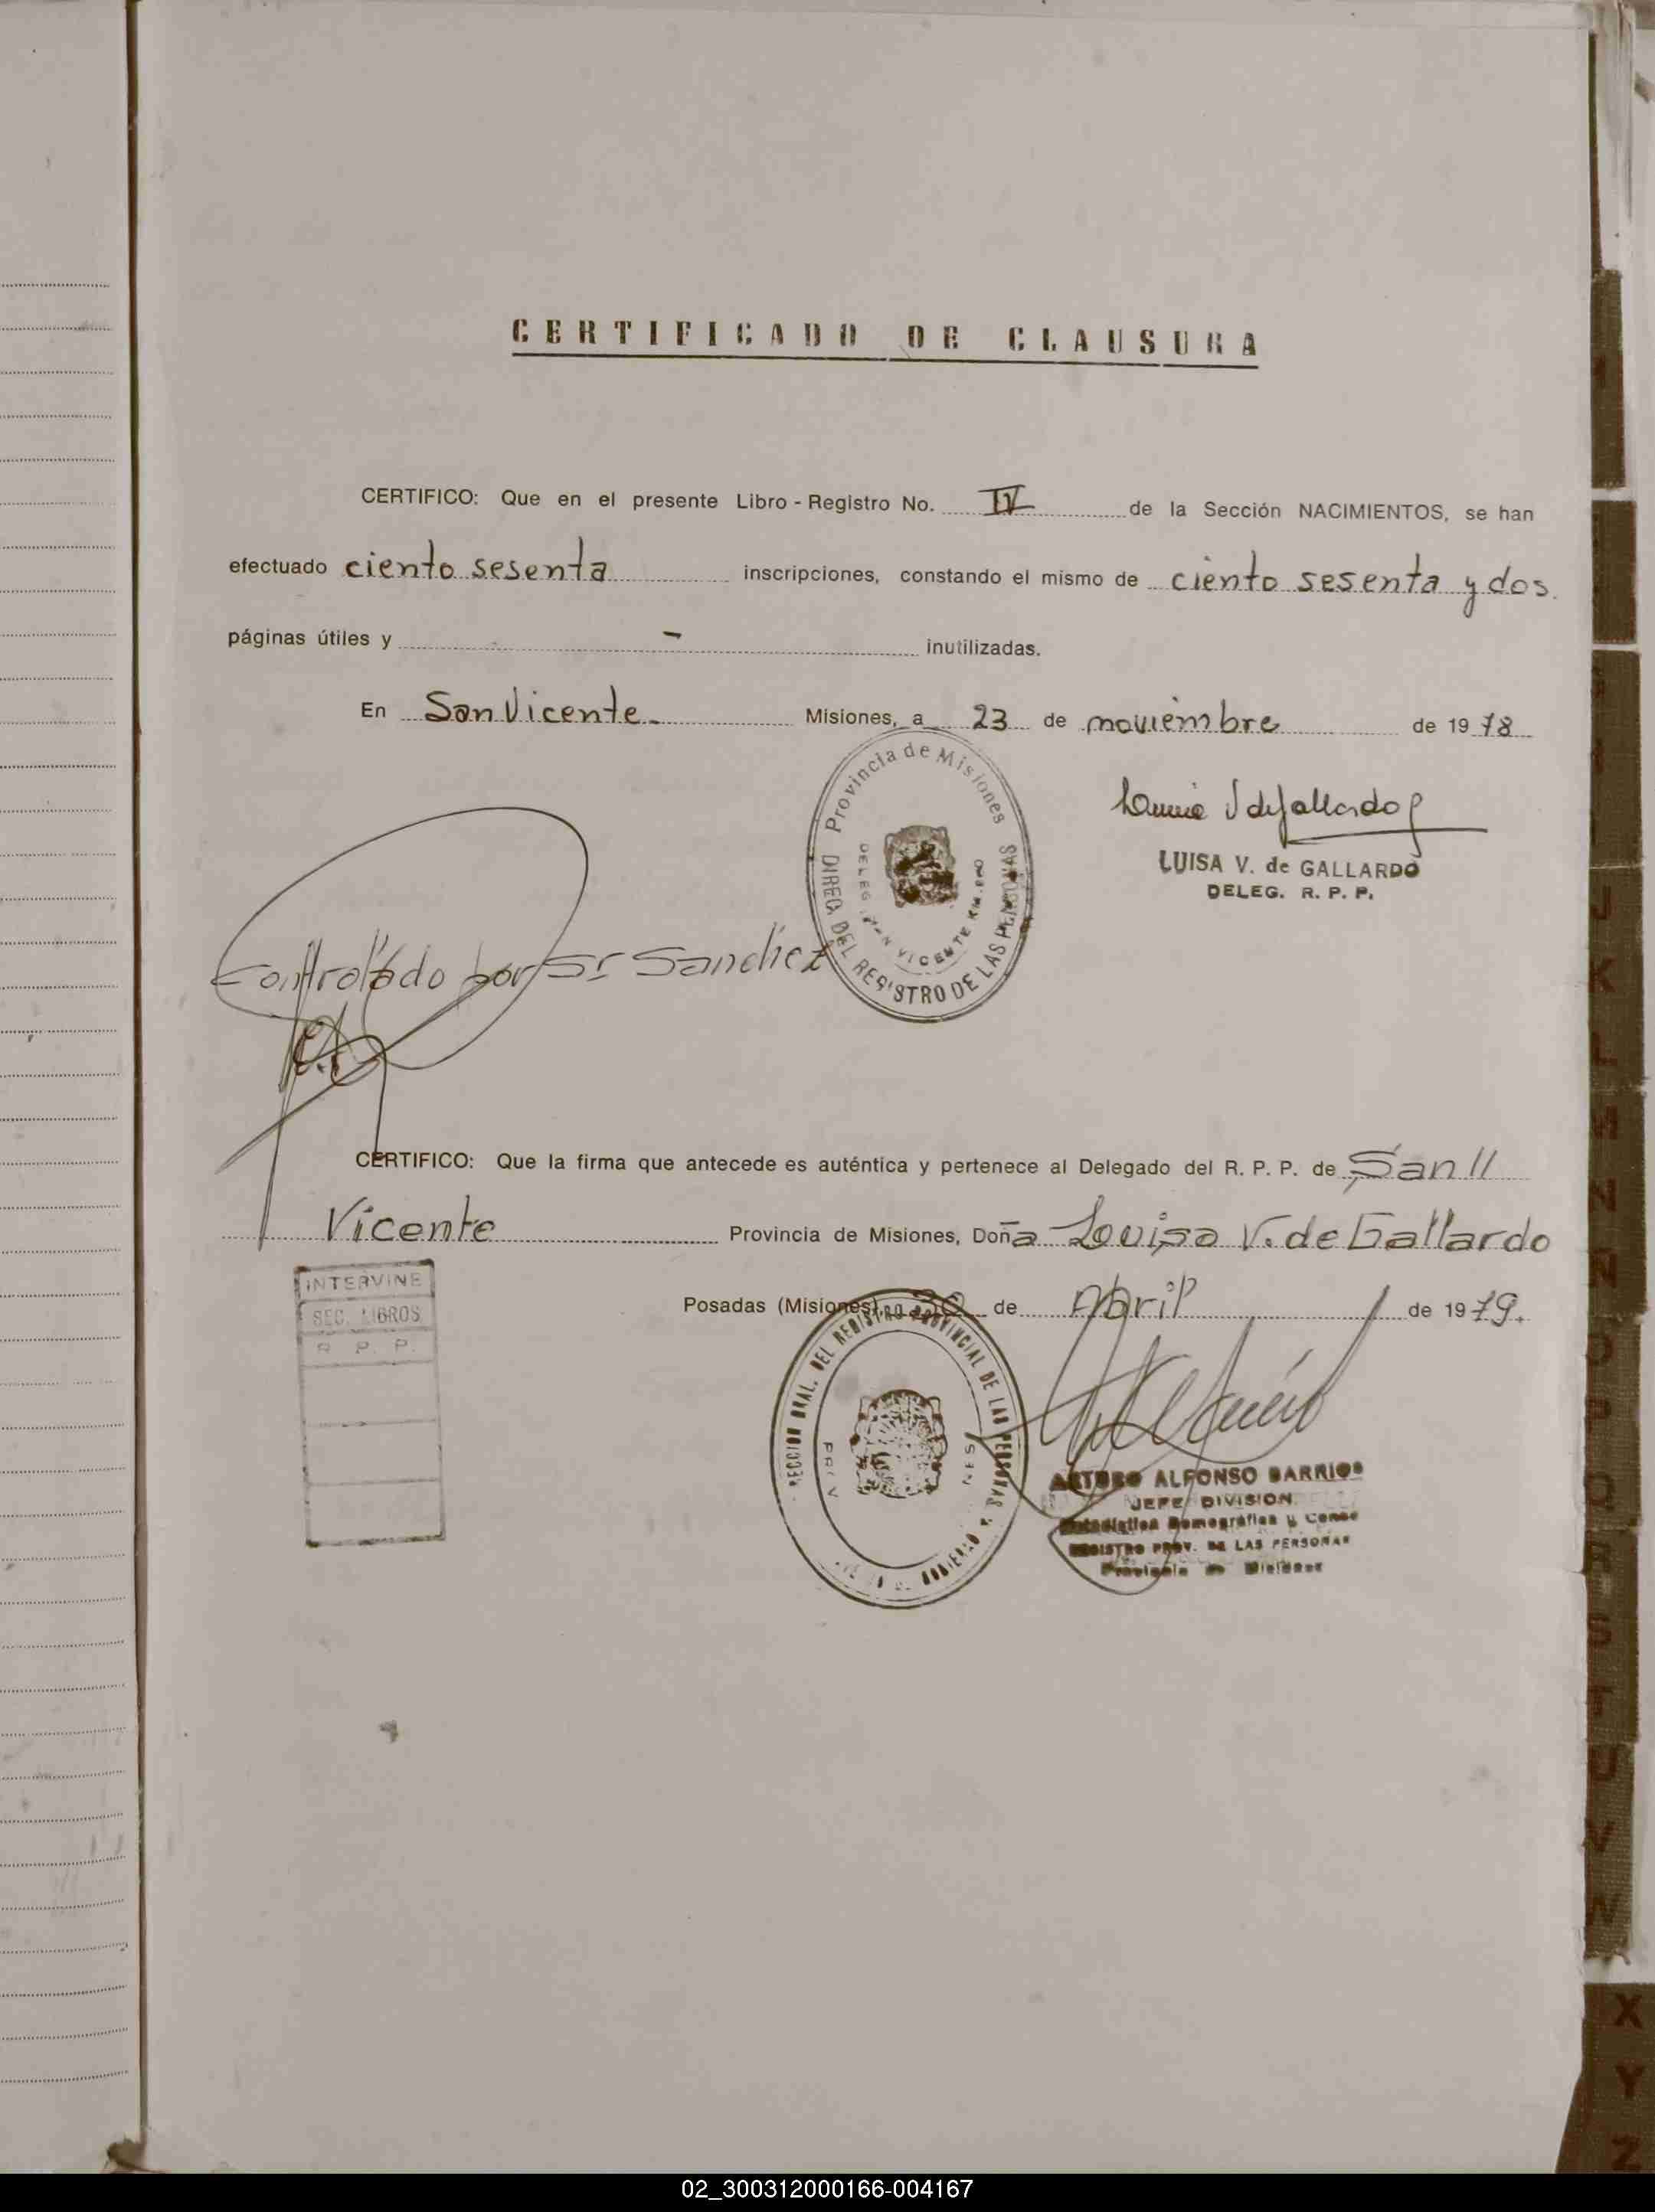 CERTIFICADO DE CLAUSURA
CERTIFICO: Que en el presente Libro - Registro No. IV de la Sección NACIMIENTOS, se han
efectuado ciento sesenta inscripciones, constando el mismo de ciento sesenta y dos.
páginas útiles y - inutilizadas.
En San Vicente Misiones, a 23 de noviembre de 1978
Provincia de Misiones
DIREC. DEL REGISTRO DE LAS PERSONAS
VICENTE
LUISA V. de GALLARDO
DELEG. R. P. P.
Controlado por Sr Sanchez
CERTIFICO: Que la firma que antecede es auténtica y pertenece al Delegado del R. P. P. de San //
Vicente Provincia de Misiones, Doña Louisa V. de Gallardo
Posadas (Misiones), 30 de Abril de 1979.
INTERVINE
SEC. LIBROS
R. P. P.
DEL REGISTRO PROVINCIAL DE LAS PERSONAS
ARTURO ALFONSO BARRIOS
JEFE DIVISION
REGISTRO PROV. DE LAS PERSONAS
Provincia de Misiones
J
K
L
M
N
Ñ
O
P
Q
R
S
T
U
V
W
X
Y
Z
02_300312000166-004167